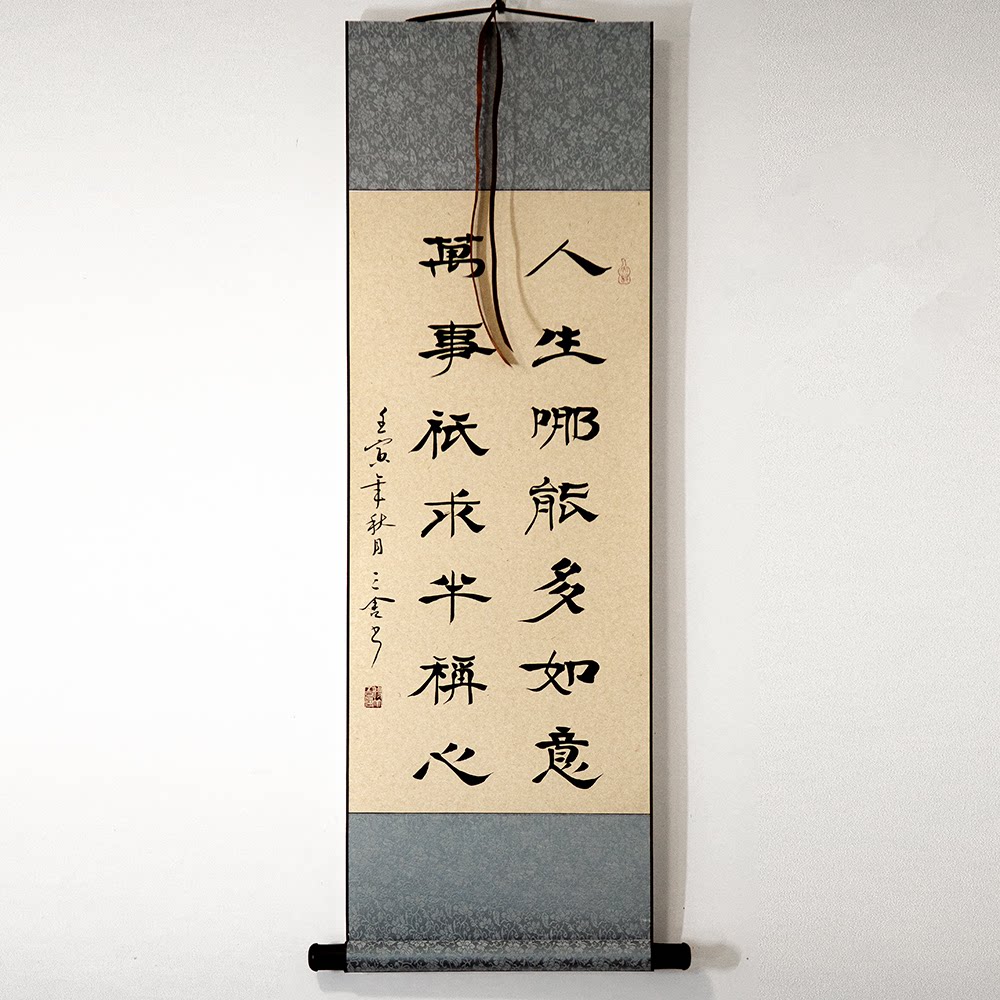 人生哪能多如意
萬事祇求半稱心
壬寅年秋月三舍书